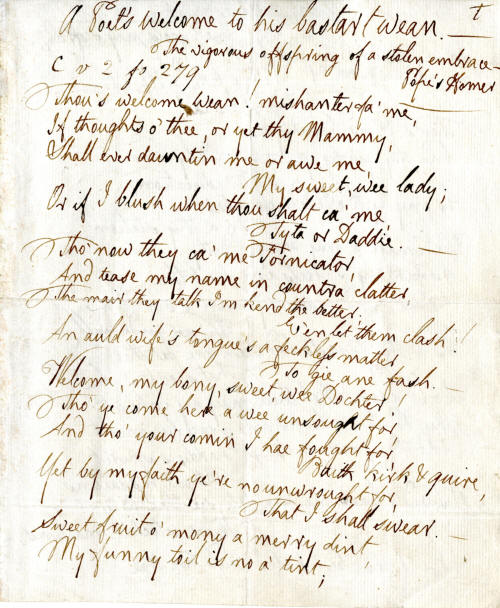 A Poet's welcome to his bastart wean. — t
The vigorous offspring of a stolen embrace —
Pope's Homer
C v 2 fo 279
Thou's welcome, wean! mishanter fa' me,
If thoughts o' thee, or yet thy Mammy,
Shall ever dauntin me or awe me,
My sweet, wee lady;
Or if I blush when thou shalt ca' me
Tyta or Daddie. —
Tho' now they ca' me Fornicator,
And tease my name in countra clatter,
The mair they talk I'm kend the better;
E'en let them clash!
An auld wife's tongue's a feckless matter
To gie ane fash. —
Welcome, my bony, sweet, wee Dochter!
Tho' ye come here a wee unsought for,
And tho' your comin I hae fought for,
Baith kirk & quire,
Yet by my faith ye're no unwrought for,
That I shall swear. —
Sweet fruit o' mony a merry dint,
My funny toil is no a' tint;